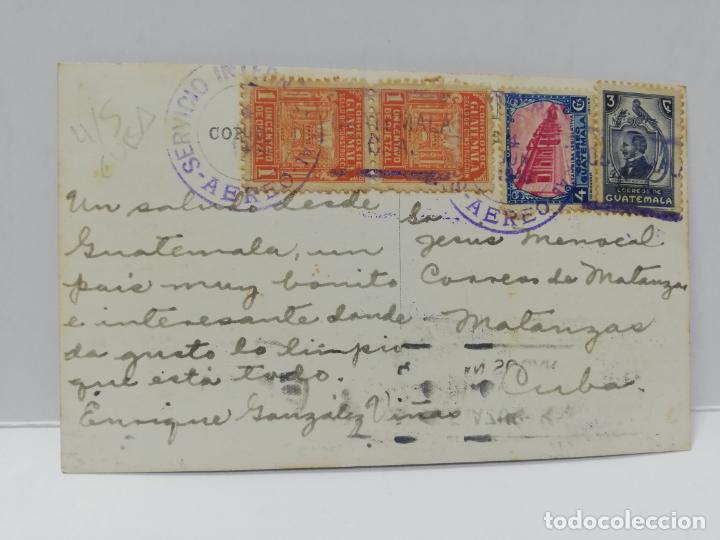 SERVICIO INTER
AEREO
COR
1 CORREOS DE GUATEMALA 1
UN CENTAVO
1 CORREOS DE GUATEMALA 1
UN CENTAVO
4
GUATEMALA
AEREO
3
CORREOS DE
GUATEMALA
4/5
CUBA
Un saludo desde
Guatemala, un
pais muy bonito
e interesante donde
da gusto lo limpio
que está todo.
Enrique González Viñas
Sr.
Jesus Menocal
Correos de Matanzas
Matanzas
Cuba.
todocoleccion.net